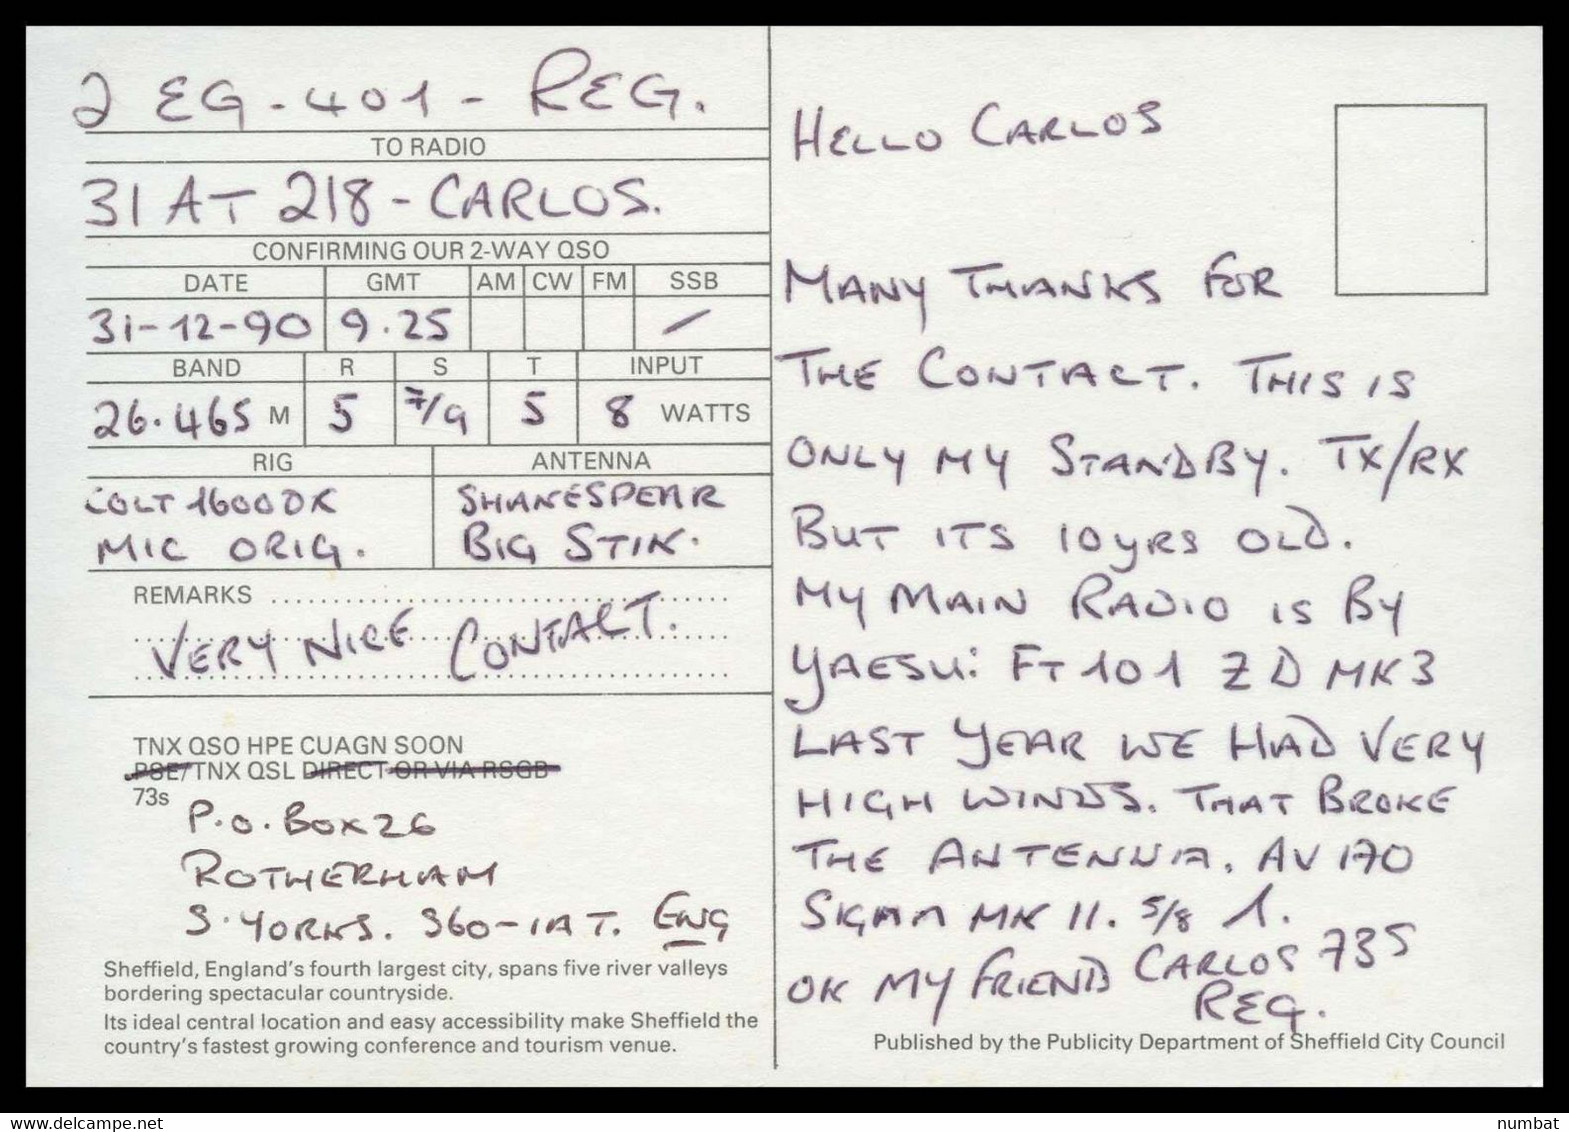 2 EG-401- REG.
TO RADIO
31 AT 218 - CARLOS.
CONFIRMING OUR 2-WAY QSO
DATE GMT AM CW FM SSB
31-12-90 9.25 /
BAND R S T INPUT
26.465 M 5 7/9 5 8 WATTS
RIG ANTENNA
COLT 1600DX SHAKESPEAR
MIC ORIG. BIG STIK.
REMARKS
VERY NICE CONTACT.
TNX QSO HPE CUAGN SOON
PSE/TNX QSL DIRECT OR VIA RSGB
73s
P.O. BOX 26
ROTHERHAM
S. YORKS. S60-1AT. ENG
Sheffield, England's fourth largest city, spans five river valleys
bordering spectacular countryside.
Its ideal central location and easy accessibility make Sheffield the
country's fastest growing conference and tourism venue.
HELLO CARLOS
MANY THANKS FOR
THE CONTACT. THIS IS
ONLY MY STANDBY. TX/RX
BUT ITS 10 YRS OLD.
MY MAIN RADIO IS BY
YAESU: FT101 ZD MK3
LAST YEAR WE HAD VERY
HIGH WINDS. THAT BROKE
THE ANTENNA. AV170
SIGMA MK II. 5/8 λ.
OK MY FRIEND CARLOS 73S
REG.
Published by the Publicity Department of Sheffield City Council
www.delcampe.net
numbat